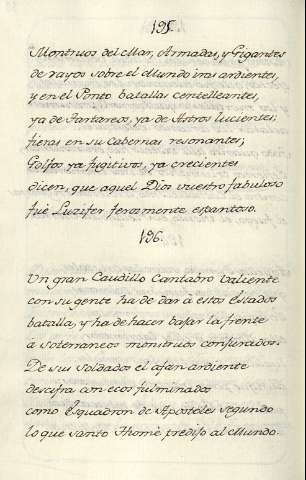 195.
Montruos del Mar, Armadas, y Gigantes
de rayos sobre el Mundo iras ardientes,
y en el Ponto batallas centelleantes,
ya de Tartareos, ya de Astros lucientes;
fieras en su Cabernas resonantes;
Golfos ya fugitivos, ya crecientes
dicen, que aquel Dios vuestro fabuloso
fuè Luzifer ferozmente espantoso.
196.
Un gran Caudillo Cantabro Valiente
con su gente ha de dar à estos Estados
batalla, y ha de hacer bajar la frente
a soterraneos monstruos conjurados.
De sus soldados el afan ardiente
descifra con ecos fulminados
como Esquadron de Apostoles segundo
lo que santo Thomè predijo al Mundo.